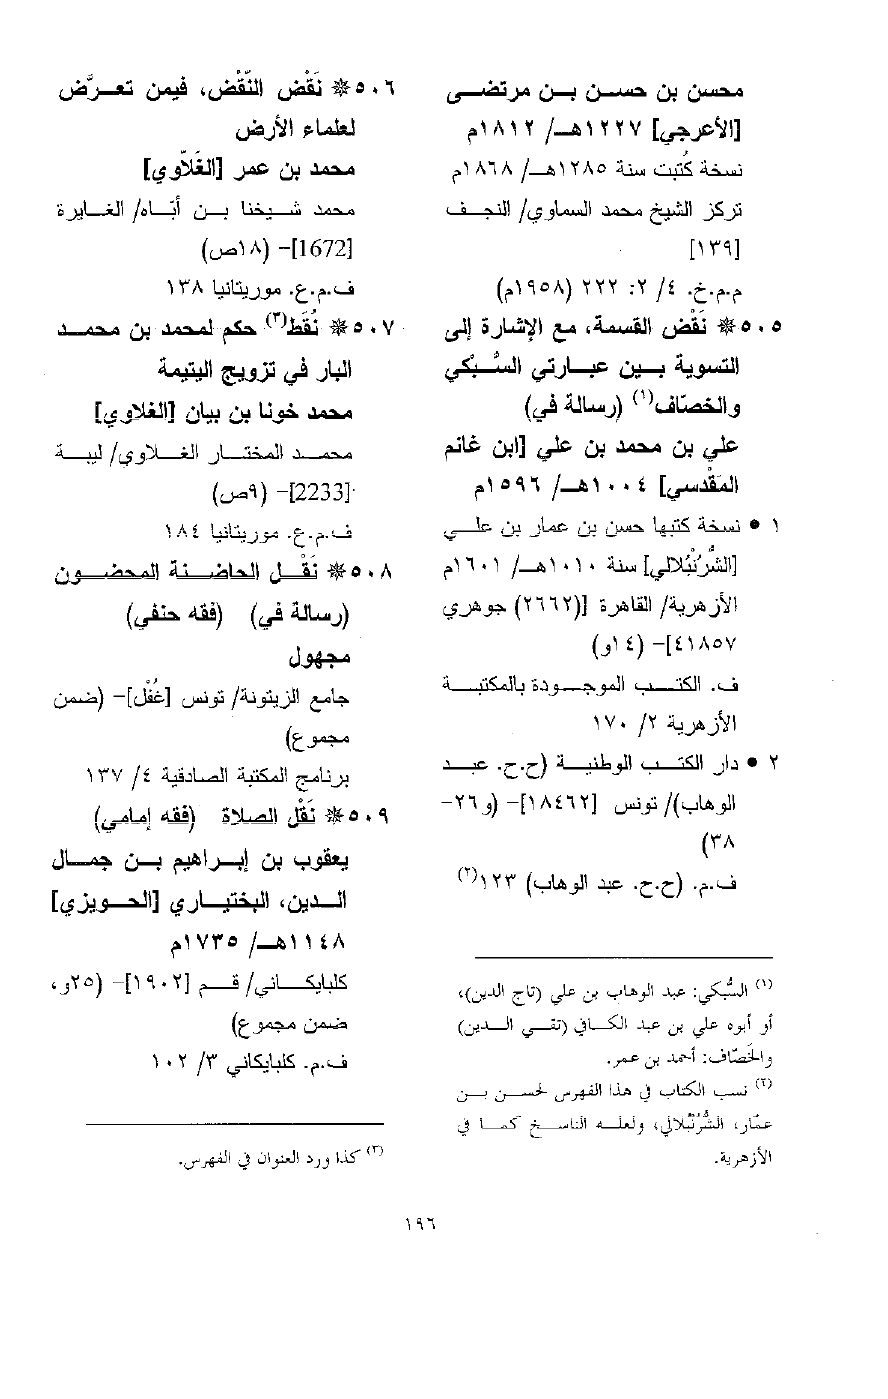 محسن بن حسن بن مرتضى
[الأعرجي] ١٢٢٧هـ/ ١٨١٢م
نسخة كُتبت سنة ١٢٨٥هـ/ ١٨٦٨م
تركز الشيخ محمد السماوي/ النجف
[١٣٩]
م.م.خ. ٤/ ٢: ٢٢٢ (١٩٥٨م)
٥٠٥ * نَقْض القسمة، مع الإشارة إلى
التسوية بين عبارتي السُّبْكي
والخصّاف(١) (رسالة في)
علي بن محمد بن علي [ابن غانم
المَقْدسي] ١٠٠٤هـ/ ١٥٩٦م
١ • نسخة كتبها حسن بن عمار بن علي
[الشُّرُنْبُلالي] سنة ١٠١٠هـ/ ١٦٠١م
الأزهرية/ القاهرة [(٢٦٦٢) جوهري
٤١٨٥٧]– (١٤و)
ف. الكتب الموجودة بالمكتبة
الأزهرية ٢/ ١٧٠
٢ • دار الكتب الوطنية (ح.ح. عبد
الوهاب)/ تونس [١٨٤٦٢]– (و٢٦–
٣٨)
ف.م. (ح.ح. عبد الوهاب) ١٢٣(٢)
(١) السُّبكي: عبد الوهاب بن علي (تاج الدين)،
أو أبوه علي بن عبد الكافي (تقي الدين)
والخَصّاف: أحمد بن عمر.
(٢) نسب الكتاب في هذا الفهرس لحسن بن
عمّار، الشُّرُنْبُلالي، ولعله الناسخ كما في
الأزهرية.
٥٠٦ * نَقْض النَّقْض، فيمن تعرَّض
لعلماء الأرض
محمد بن عمر [الغَلّاوي]
محمد شيخنا بن أبّاه/ الغايرة
[1672]– (١٨ص)
ف.م.ع. موريتانيا ١٣٨
٥٠٧ * نُقَط(٣) حكم لمحمد بن محمد
البار في تزويج اليتيمة
محمد خونا بن بيان [الغلاوي]
محمد المختار الغلاوي/ ليبة
[2233]– (٩ص)
ف.م.ع. موريتانيا ١٨٤
٥٠٨ * نَقْل الحاضنة المحضون
(رسالة في) (فقه حنفي)
مجهول
جامع الزيتونة/ تونس [غُفْل]– (ضمن
مجموع)
برنامج المكتبة الصادقية ٤/ ١٣٧
٥٠٩ * نَقْل الصلاة (فقه إمامي)
يعقوب بن إبراهيم بن جمال
الدين، البختياري [الحويزي]
١١٤٨هـ/ ١٧٣٥م
كلبايكاني/ قم [١٩٠٢]– (٢٥و،
ضمن مجموع)
ف.م. كلبايكاني ٣/ ١٠٢
(٣) كذا ورد العنوان في الفهرس.
١٩٦